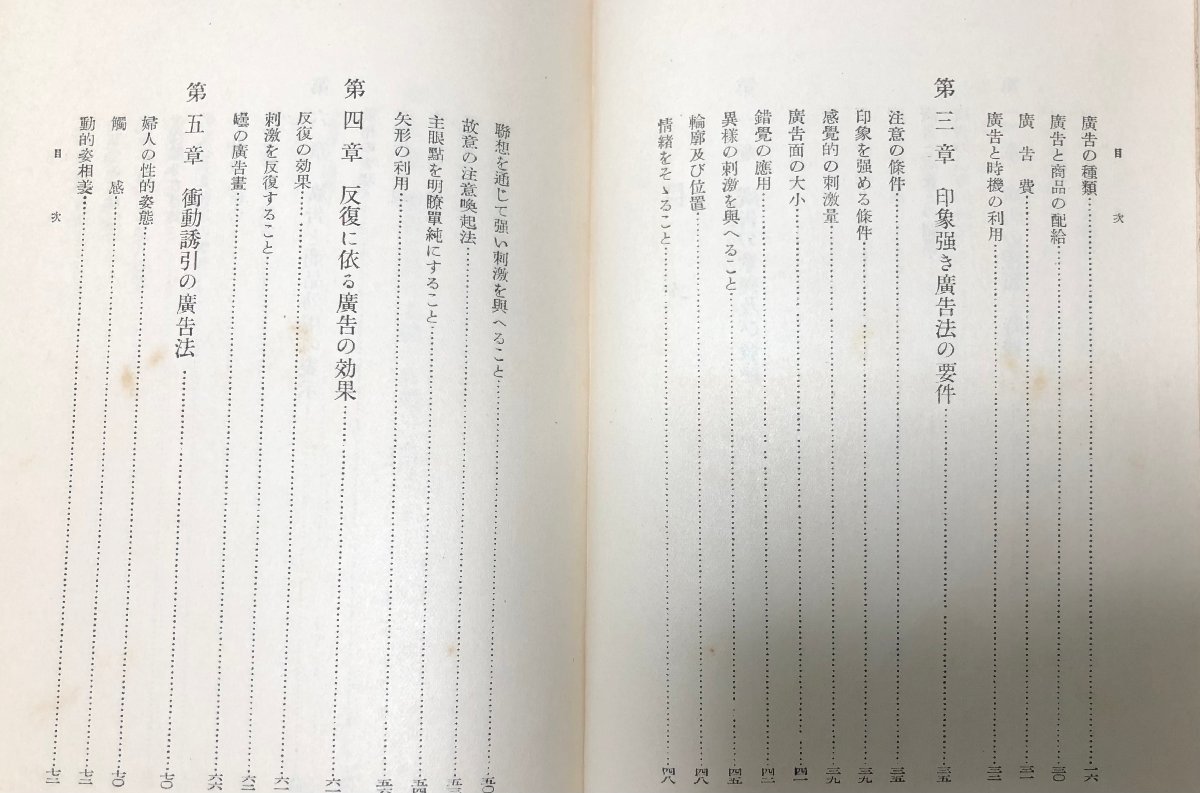 目次
廣告の種類……二六
廣告と商品の配給……三〇
廣告費……三一
廣告と時機の利用……三二
第三章 印象强き廣告法の要件……三五
注意の條件……三五
印象を强める條件……三九
感覺的の刺激量……三九
廣告面の大小……四一
錯覺の應用……四二
異樣の刺激を與へること……四五
輪廓及び位置……四八
情緒をそゝること……四八
聯想を通じて强い刺激を與へること……五〇
故意の注意喚起法……五三
主眼點を明瞭單純にすること……五四
矢形の利用……五六
第四章 反復に依る廣告の効果……六一
反復の効果……六一
刺激を反復すること……六二
の廣告畫……六六
第五章 衝動誘引の廣告法……七〇
婦人の性的姿態……七〇
觸感……七二
動的姿相美……七二
目次